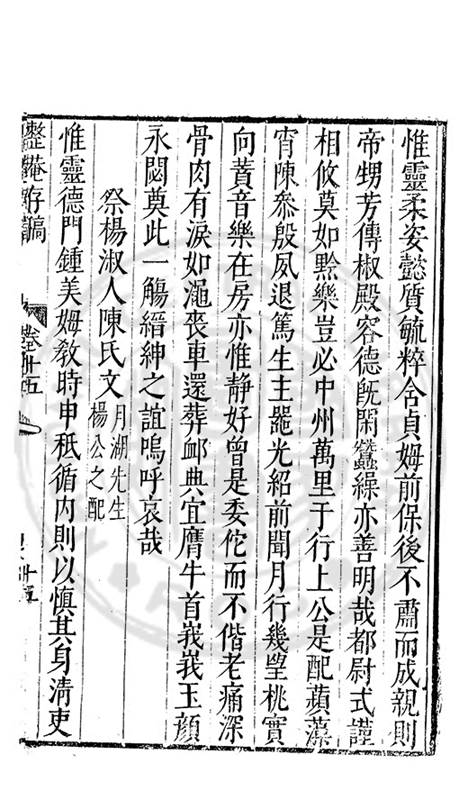 惟靈柔姿懿質毓粹含貞姆前保後不肅而成親則
帝甥芳傳椒殿容德旣閑蠶繰亦善明哉都尉式謹
相攸莫如黔樂豈必中州萬里于行上公是配蘋藻
宵陳叅殷夙退篤生主噐光紹前聞月行幾望桃實
向蕡音樂在房亦惟静好曾是委佗而不偕老痛深
骨肉有淚如澠喪車還葬卹典宜膺牛首峩峩玉顔
永閟奠此一觴縉紳之誼嗚呼哀哉
祭楊淑人陳氏文月湖先生
楊公之配
惟靈德門鍾美姆敎時申秖循内則以慎其身清吏
整菴存稿
卷十五